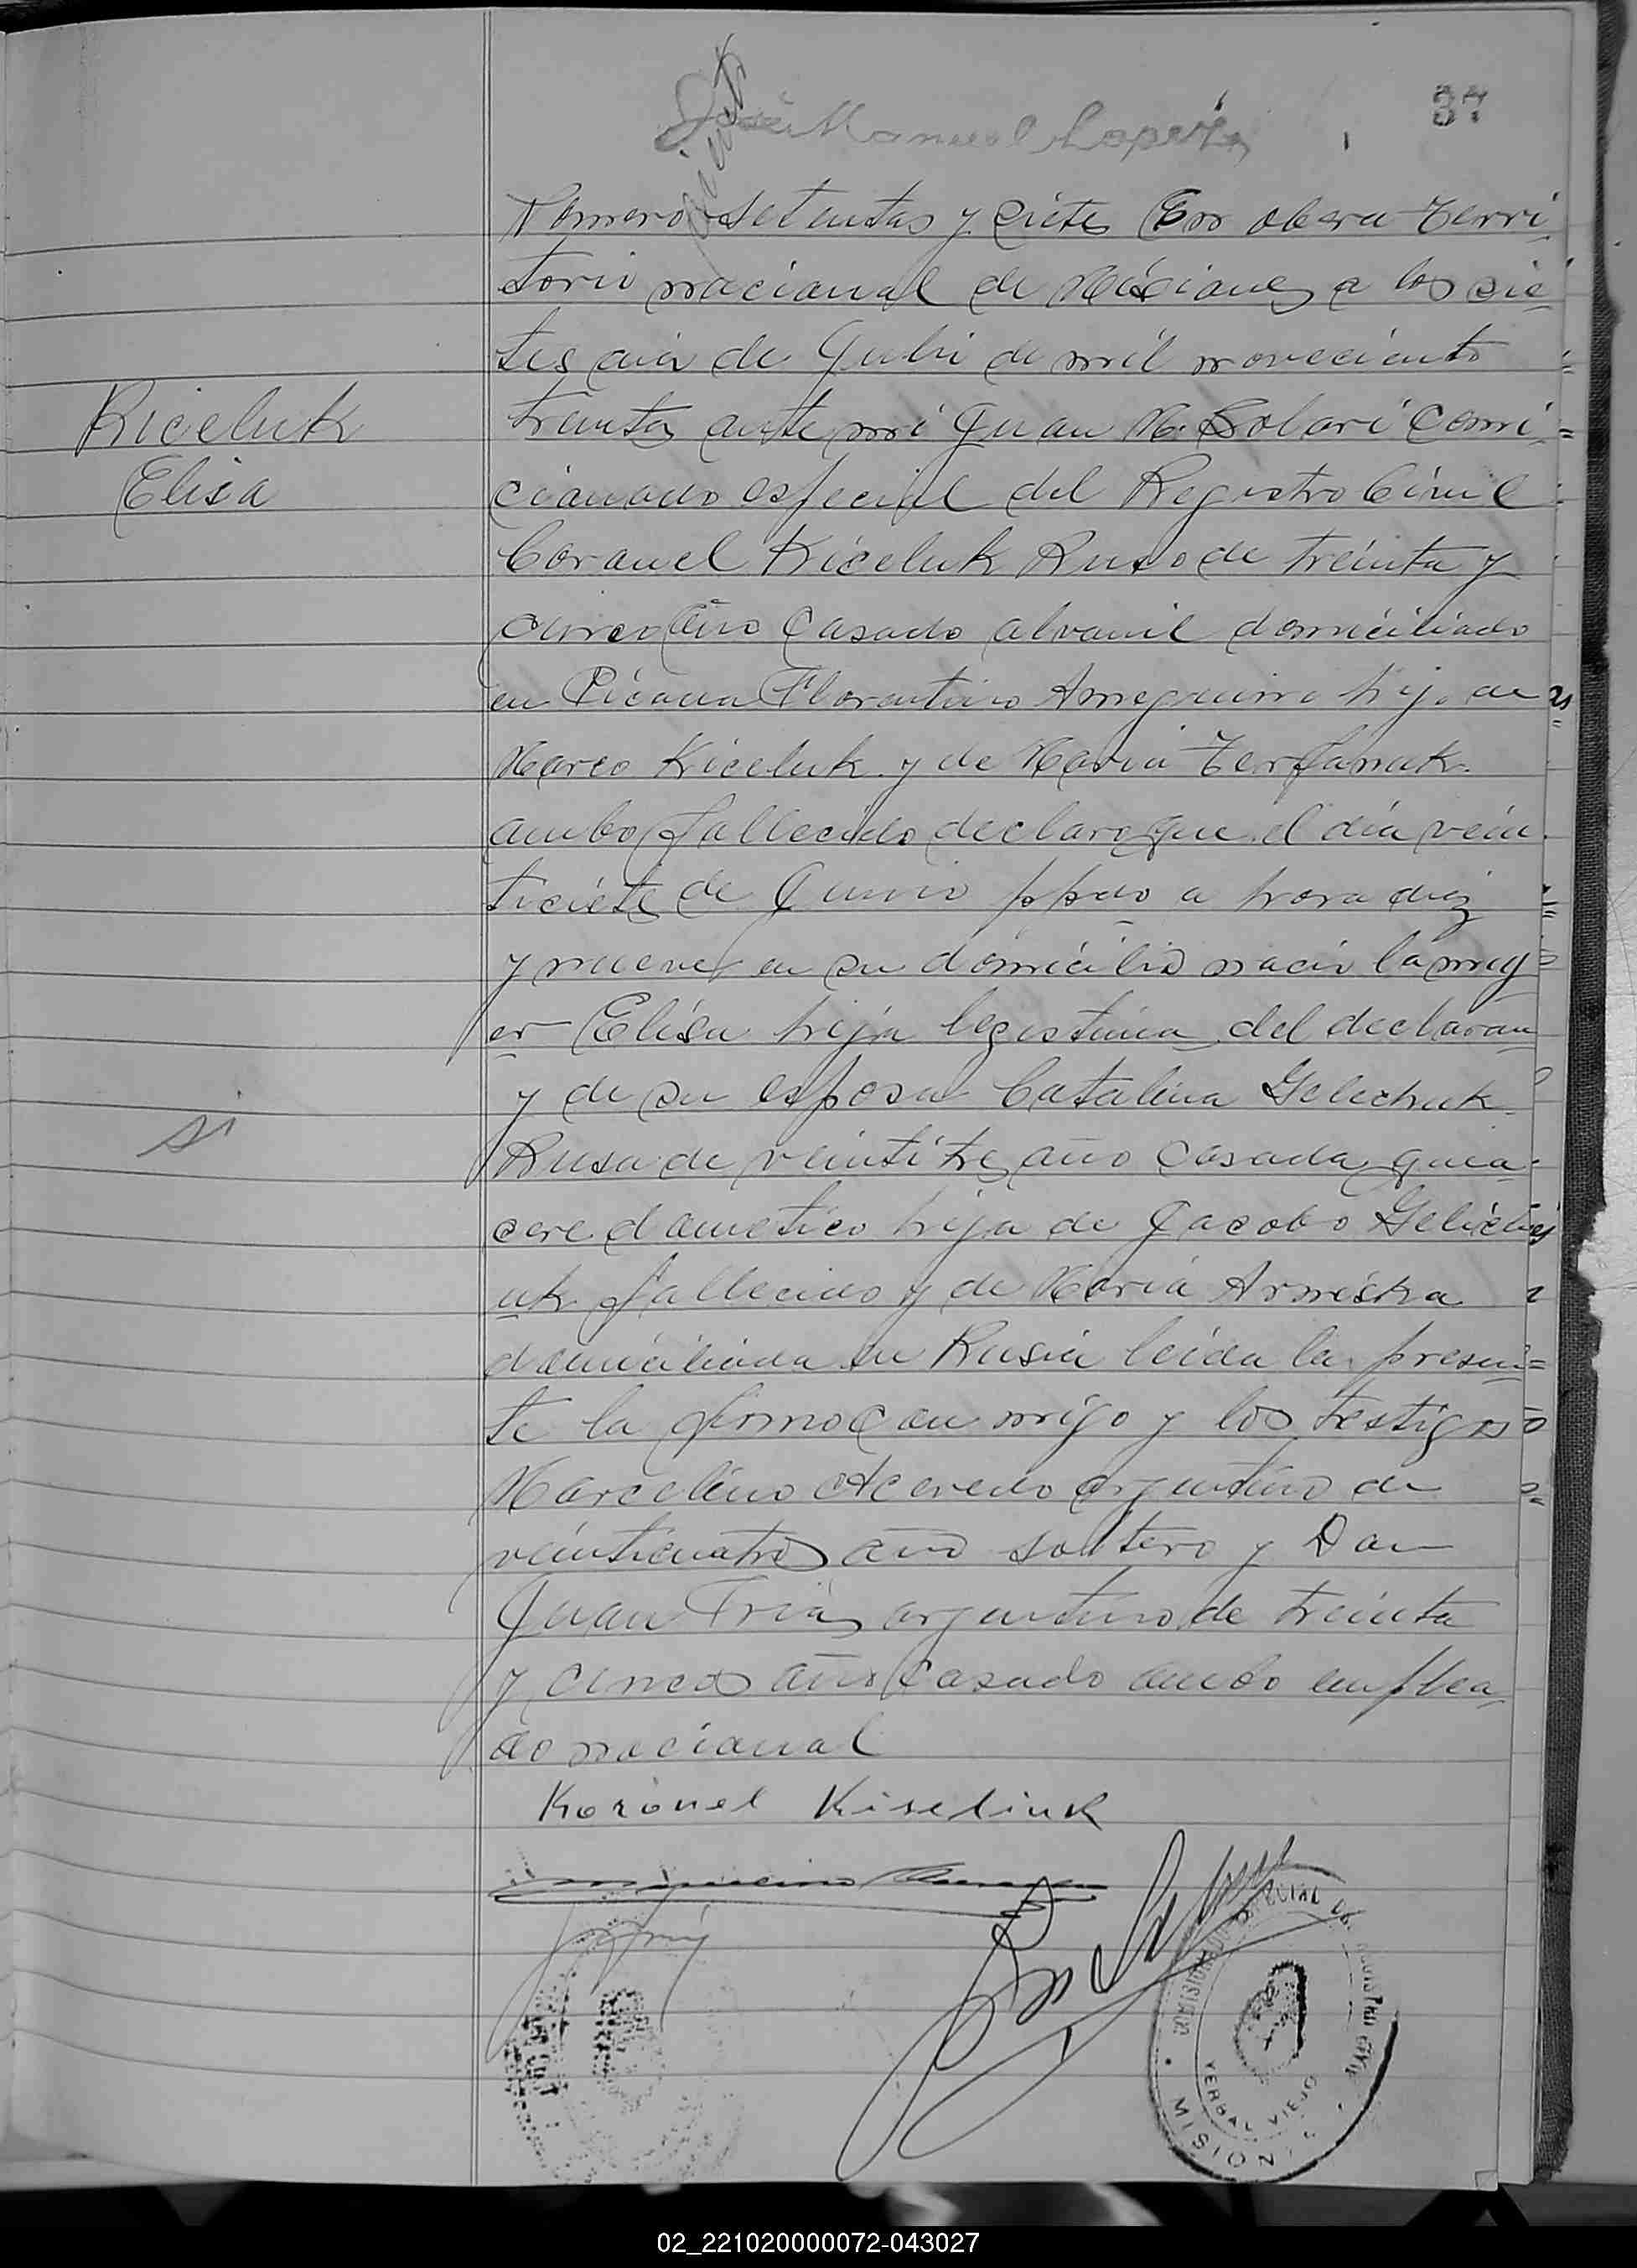 José Manuel Lopez
37
Nomero setentas y siete En obera Terri
torio nacional de Misiones a los sie-
tes dia de Julio de mil novecientos
Kiceluk
treinta ante mi Juan M. Solari Comi
Elisa
cionado especial del Registro Civil
Coronel Kiceluk Ruso de treinta y
cinco año Casado alvanil domiciliado
en Picada Florentino Ameguino hijo de
Marco Kiceluk y de Maria
ambo fallecido declaro que el dia vein
ticiete de Junio ppdo a hora diez
y nueve en su domicilio nacio la muj
er Elisa hija legistima del declaran
y de su esposa Catalina Gelechuk
si
Rusa de veintitres año Casada quea-
cere dometico hija de Jacobo Gelich
uk fallecido y de Maria
domiciliada en Rusia leida la presen-
te la firmo con migo y los testigos
Marcelino Acevedo argentino de
veinticuatro año soltero y Don
Juan Frias argentino de treinta
y cinco año Casado ambo emplea-
do nacional
Koronel Kiseliuk
YERBAL VIEJO
MISIONES
02_221020000072-043027